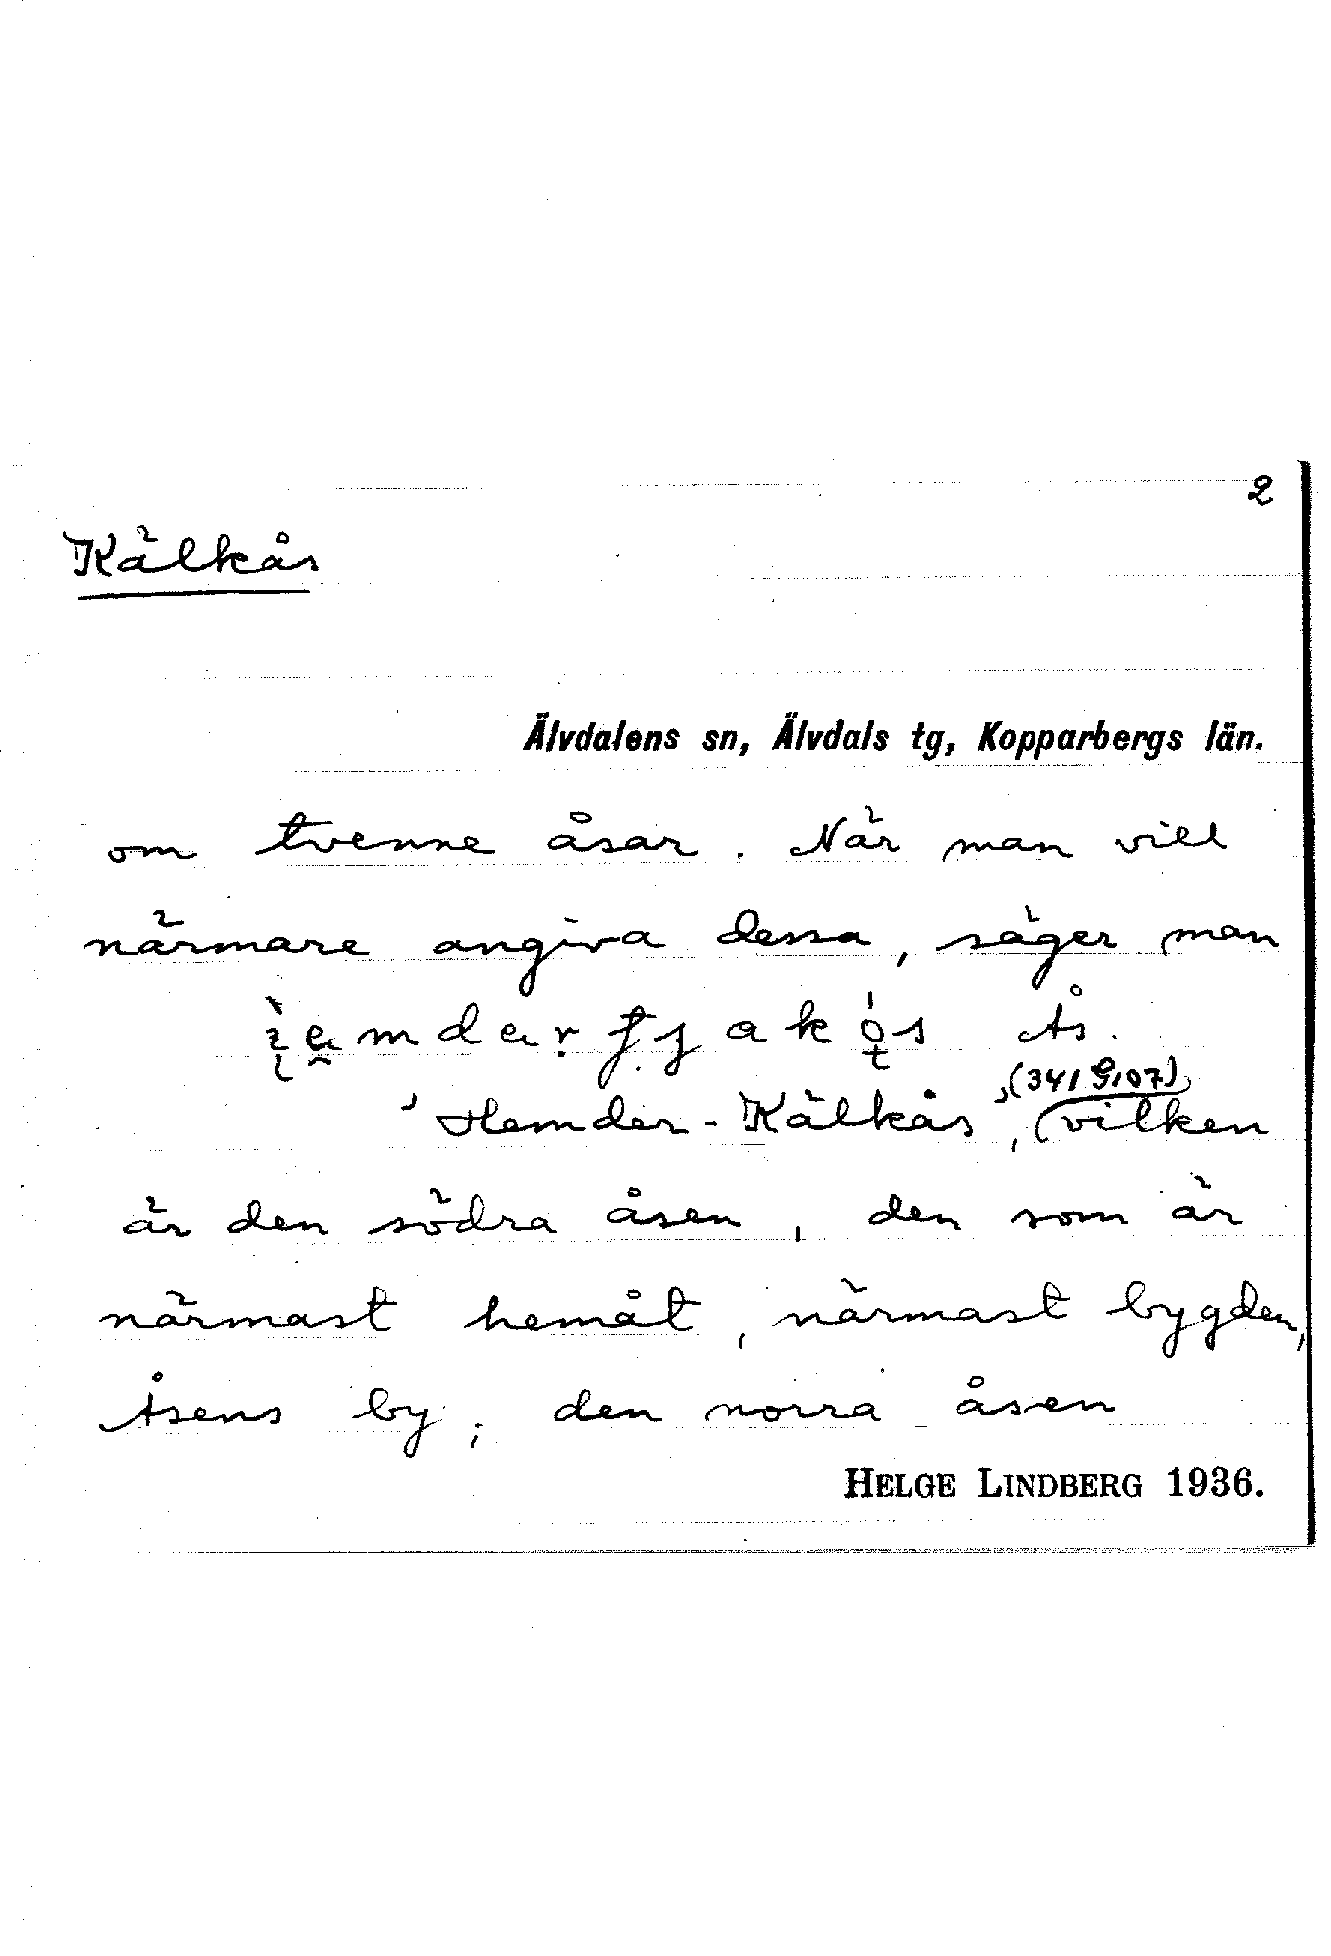 2
Kälkås
Älvdalens sn, Älvdals tg, Kopparbergs län.
om tvenne åsar. När man vill
närmare angiva dessa, säger man
Ås.
(341 G/07)
'Hemder-Kälkås', vilken
är den södra åsen, den som är
närmast hemåt, närmast bygden,
Åsens by; den norra åsen
HELGE LINDBERG 1936.